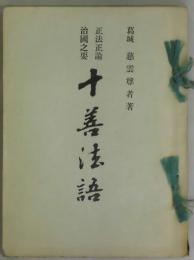 葛城 慈雲尊者著
正法正論
治國之要
十善法語